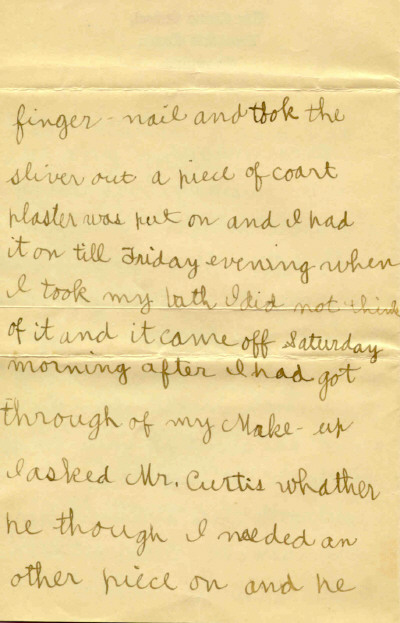 finger-nail and took the
sliver out a piece of coart
plaster was put on and I had
it on till Friday evening when
I took my bath I did not think
of it and it came off Saturday
morning after I had got
through of my Make-up
I asked Mr. Curtis whather
he though I needed an
other piece on and he